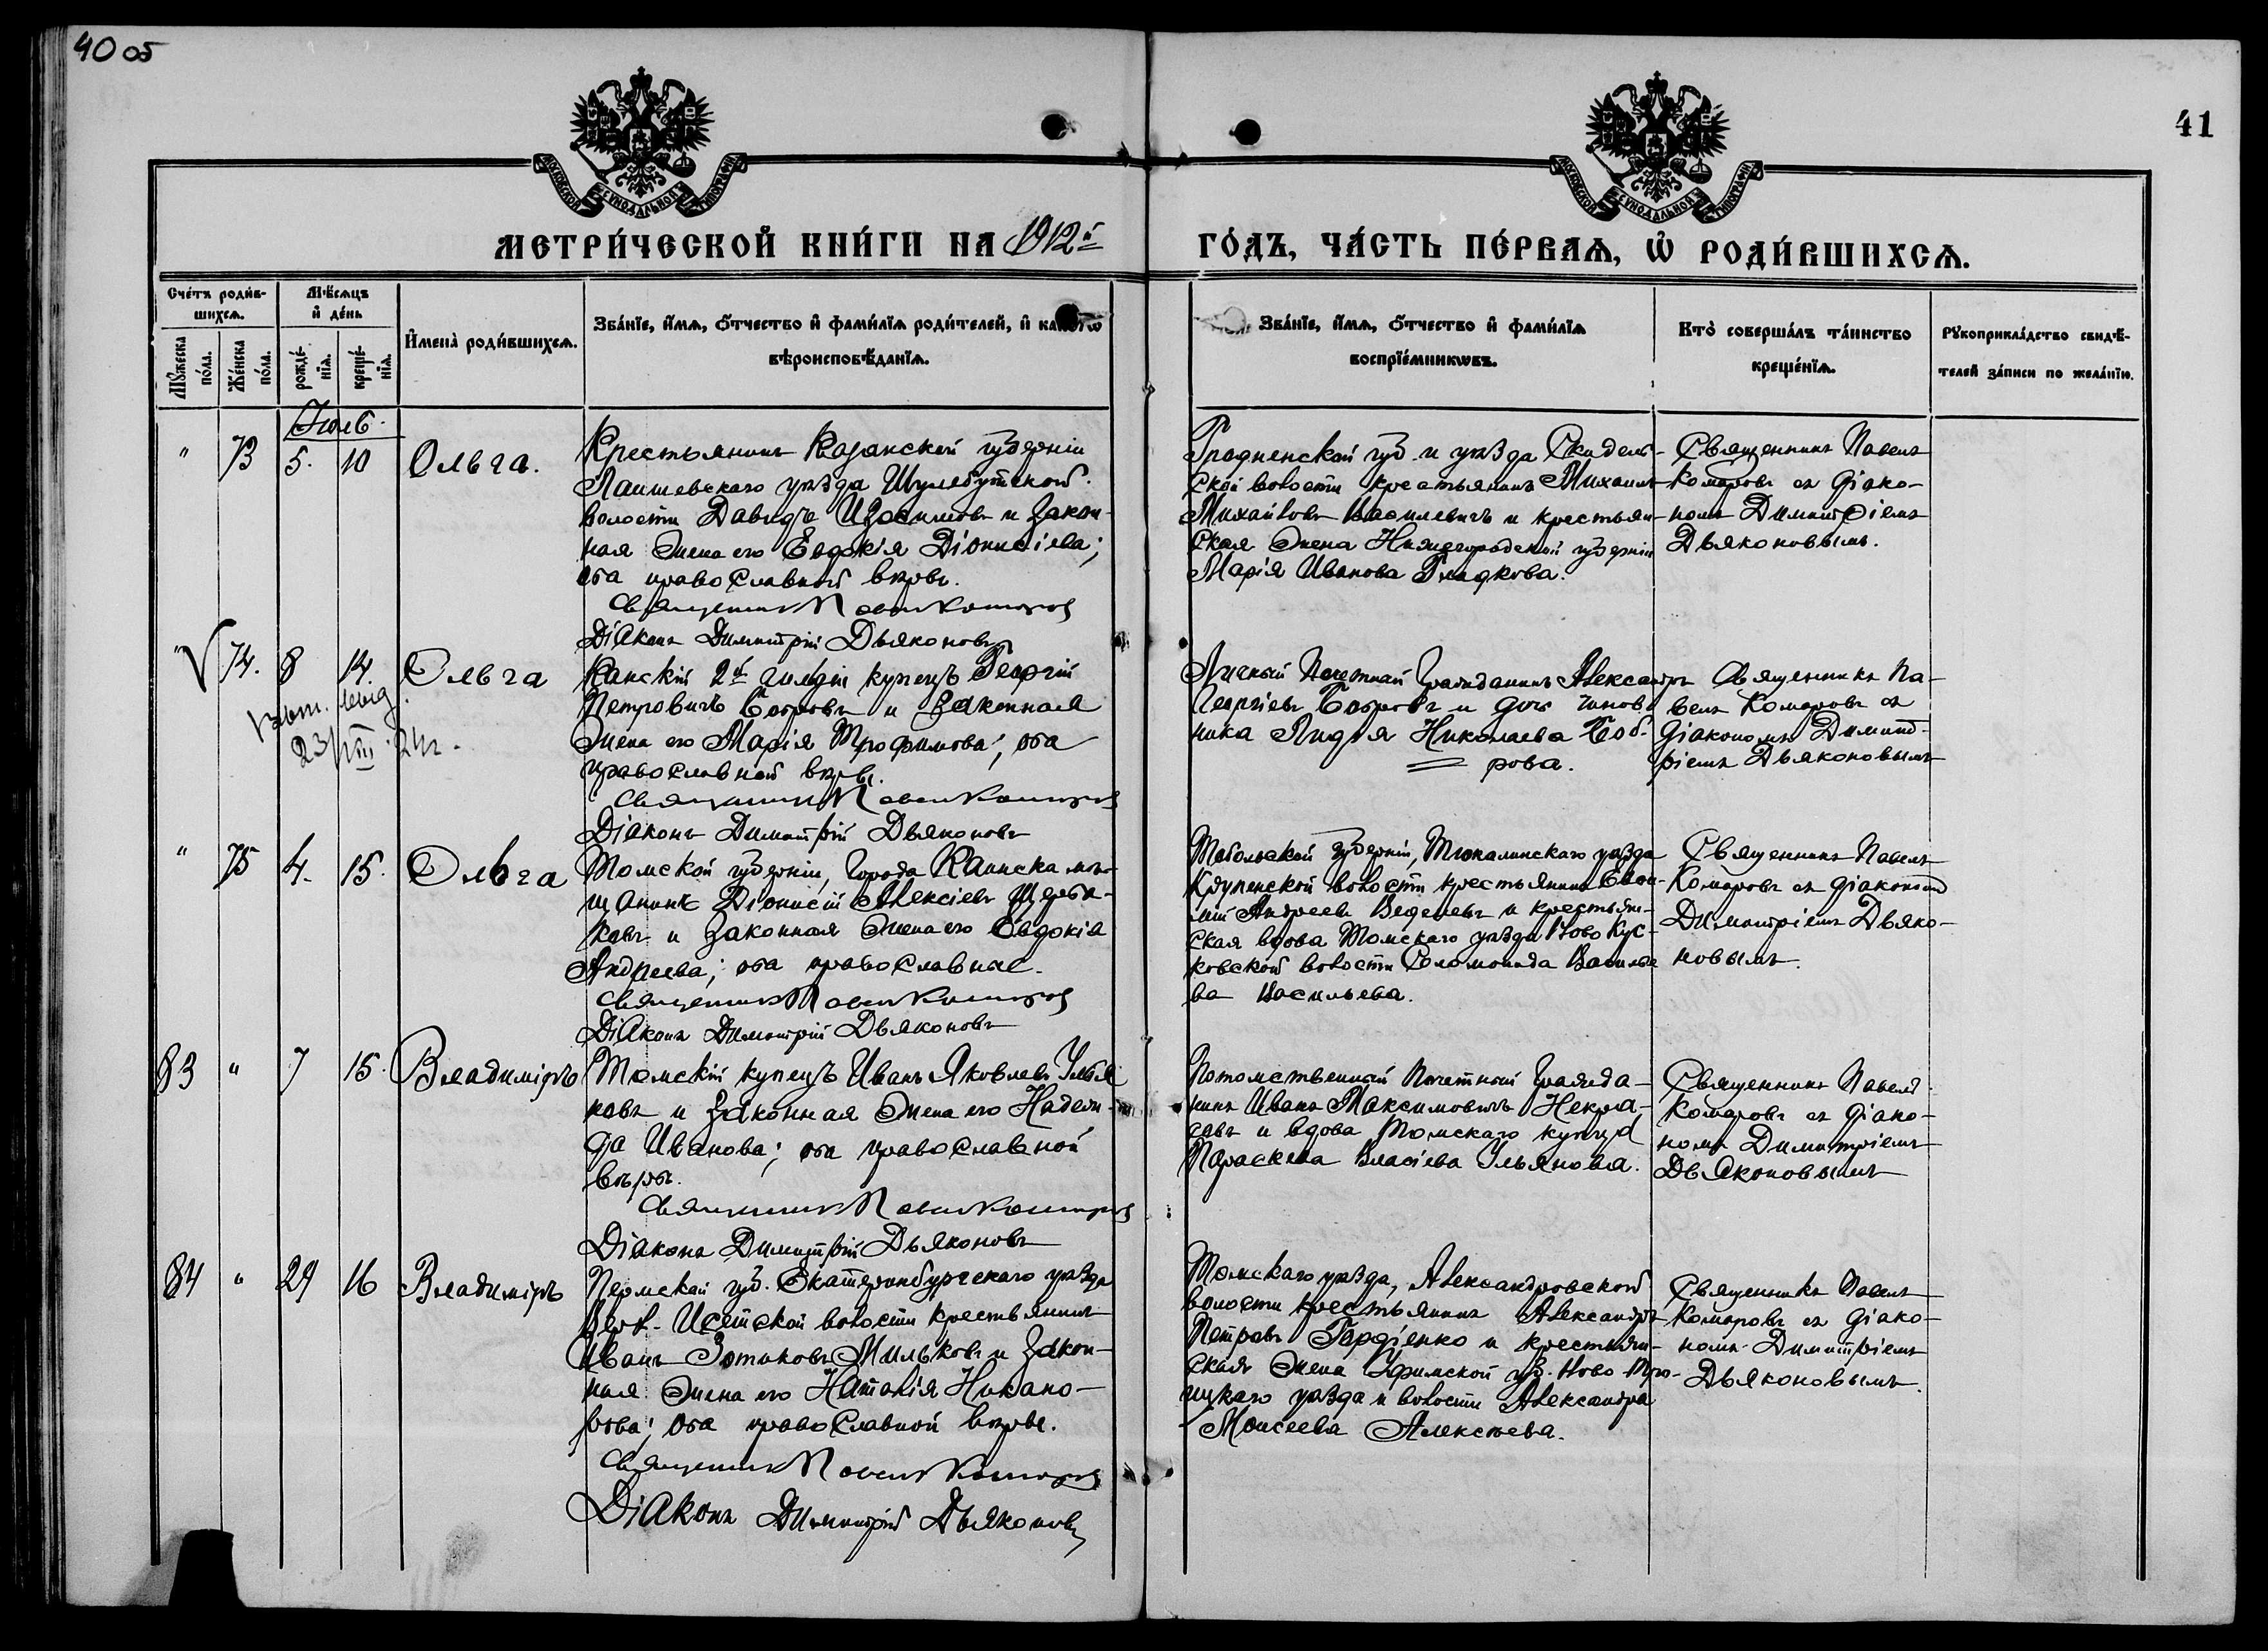 40 об
41
МОСКОВСКОЙ СѴНОДАЛЬНОЙ ТИПОГРАФІИ
МОСКОВСКОЙ СѴНОДАЛЬНОЙ ТИПОГРАФІИ
МЕТРИ́ЧЕСКОЙ КНИ́ГИ НА 1912й
ГО́ДЪ, ЧА́СТЬ ПЕ́РВАѦ, Ѡ҆ РОДИ́ВШИХСѦ.
Сче́тъ роди́в-
шихсѧ.
Мꙋ́жеска по́ла.
Же́нска по́ла.
Мѣ́сѧцъ
и҆ де́нь
рожде́-
нїѧ.
креще́-
нїѧ.
И҆мена̀ роди́вшихсѧ.
Зва́нїе, и҆́мѧ, ѻ҆́тчество и҆ фами́лїѧ роди́телей, и҆
вѣроисповѣ́данїѧ.
Зва́нїе, и҆́мѧ, ѻ҆́тчество и҆ фами́лїѧ
воспрїе́мникѡвъ.
Кто̀ соверша́лъ та́инство
креще́нїѧ.
Рꙋкоприкла́дство свидѣ́-
телей за́писи по жела́нїю.
Іюль
" 73 5. 10 Ольга.
Крестьянинъ Казанской губерніи
Лаишевскаго уѣзда Шумбутской
волости Давидъ Изосимовъ и закон-
ная жена его Евдокія Діонисіева;
оба православной вѣры.
Священникъ Павелъ Комаровъ
Діаконъ Димитрій Дьяконовъ
Гродненской губ. и уѣзда Скидель-
ской волости крестьянинъ Михаилъ
Михайловъ Василевичъ и крестьян-
ская жена Нижегородской губерніи
Марія Иванова Гладкова.
Священникъ Павелъ
Комаровъ съ діако-
номъ Димитріемъ
Дьяконовымъ.
" 74. 8 14. Ольга
23/VIII 24г.
Канскій 2й гильдіи купецъ Георгій
Петровичъ Бобровъ и законная
жена его Марія Трофимова; оба
православной вѣры.
Священникъ Павелъ Комаровъ
Діаконъ Димитрій Дьяконовъ
Личный Почетный Гражданинъ Александръ
Георгіевъ Бобровъ и дочь чинов-
ника Лидія Николаева Боб-
рова.
Священникъ Па-
велъ Комаровъ съ
діакономъ Димит-
ріемъ Дьяконовымъ
" 75 4. 15. Ольга
Томской губерніи, города Каинска мѣ-
щанинъ Діонисій Алексіевъ Щерба-
ковъ и законная жена его Евдокія
Андреева; оба православные.
Священникъ Павелъ Комаровъ
Діаконъ Димитрій Дьяконовъ
Тобольской губерніи, Тюкалинскаго уѣзда
Крупенской волости крестьянинъ
Андреевъ и крестьян-
ская вдова Томскаго уѣзда Ново Кус-
ковской волости Соломонида
ва Васильева.
Священникъ Павелъ
Комаровъ съ діакономъ
Димитріемъ Дьяко-
новымъ.
83 " 7 15. Владиміръ
Томскій купецъ Иванъ Яковлевъ Улья
новъ и законная жена его Надеж-
да Иванова; оба православной
вѣры.
Священникъ Павелъ Комаровъ
Діаконъ Димитрій Дьяконовъ
Потомственный Почетный Гражда-
нинъ Иванъ Максимовичъ Некра-
совъ и вдова Томскаго купца
Параскева Власіева Ульянова.
Священникъ Павелъ
Комаровъ съ діако-
номъ Димитріемъ
Дьяконовымъ
84 " 29 16 Владиміръ
Пермской губ. Екатеринбургскаго уѣзда
Верх-Исетской волости крестьянинъ
Иванъ Зотиковъ Мильковъ и закон-
ная жена его Наталія Никано-
рова; оба православной вѣры.
Священникъ Павелъ Комаровъ
Діаконъ Димитрій Дьяконовъ
Томскаго уѣзда, Александровской
волости крестьянинъ Александръ
Петровъ Гордіенко и крестьян-
ская жена Уфимской губ. Ново Тро-
ицкаго уѣзда и волости Александра
Моисеева Алексѣева.
Священникъ Павелъ
Комаровъ съ діако-
номъ Димитріемъ
Дьяконовымъ.